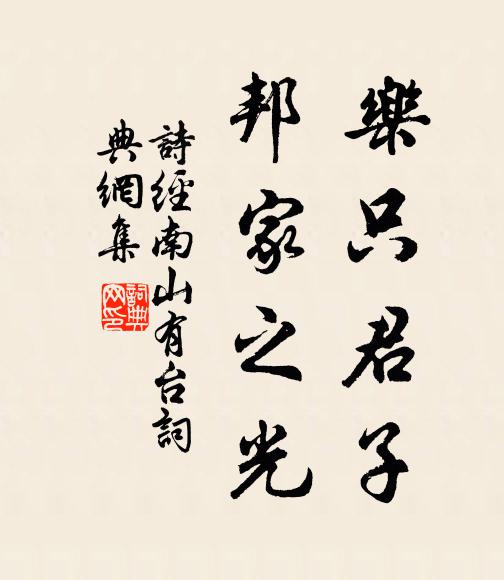 樂只君子
邦家之光
詩經南山有台詞
典網集
詞典
网印